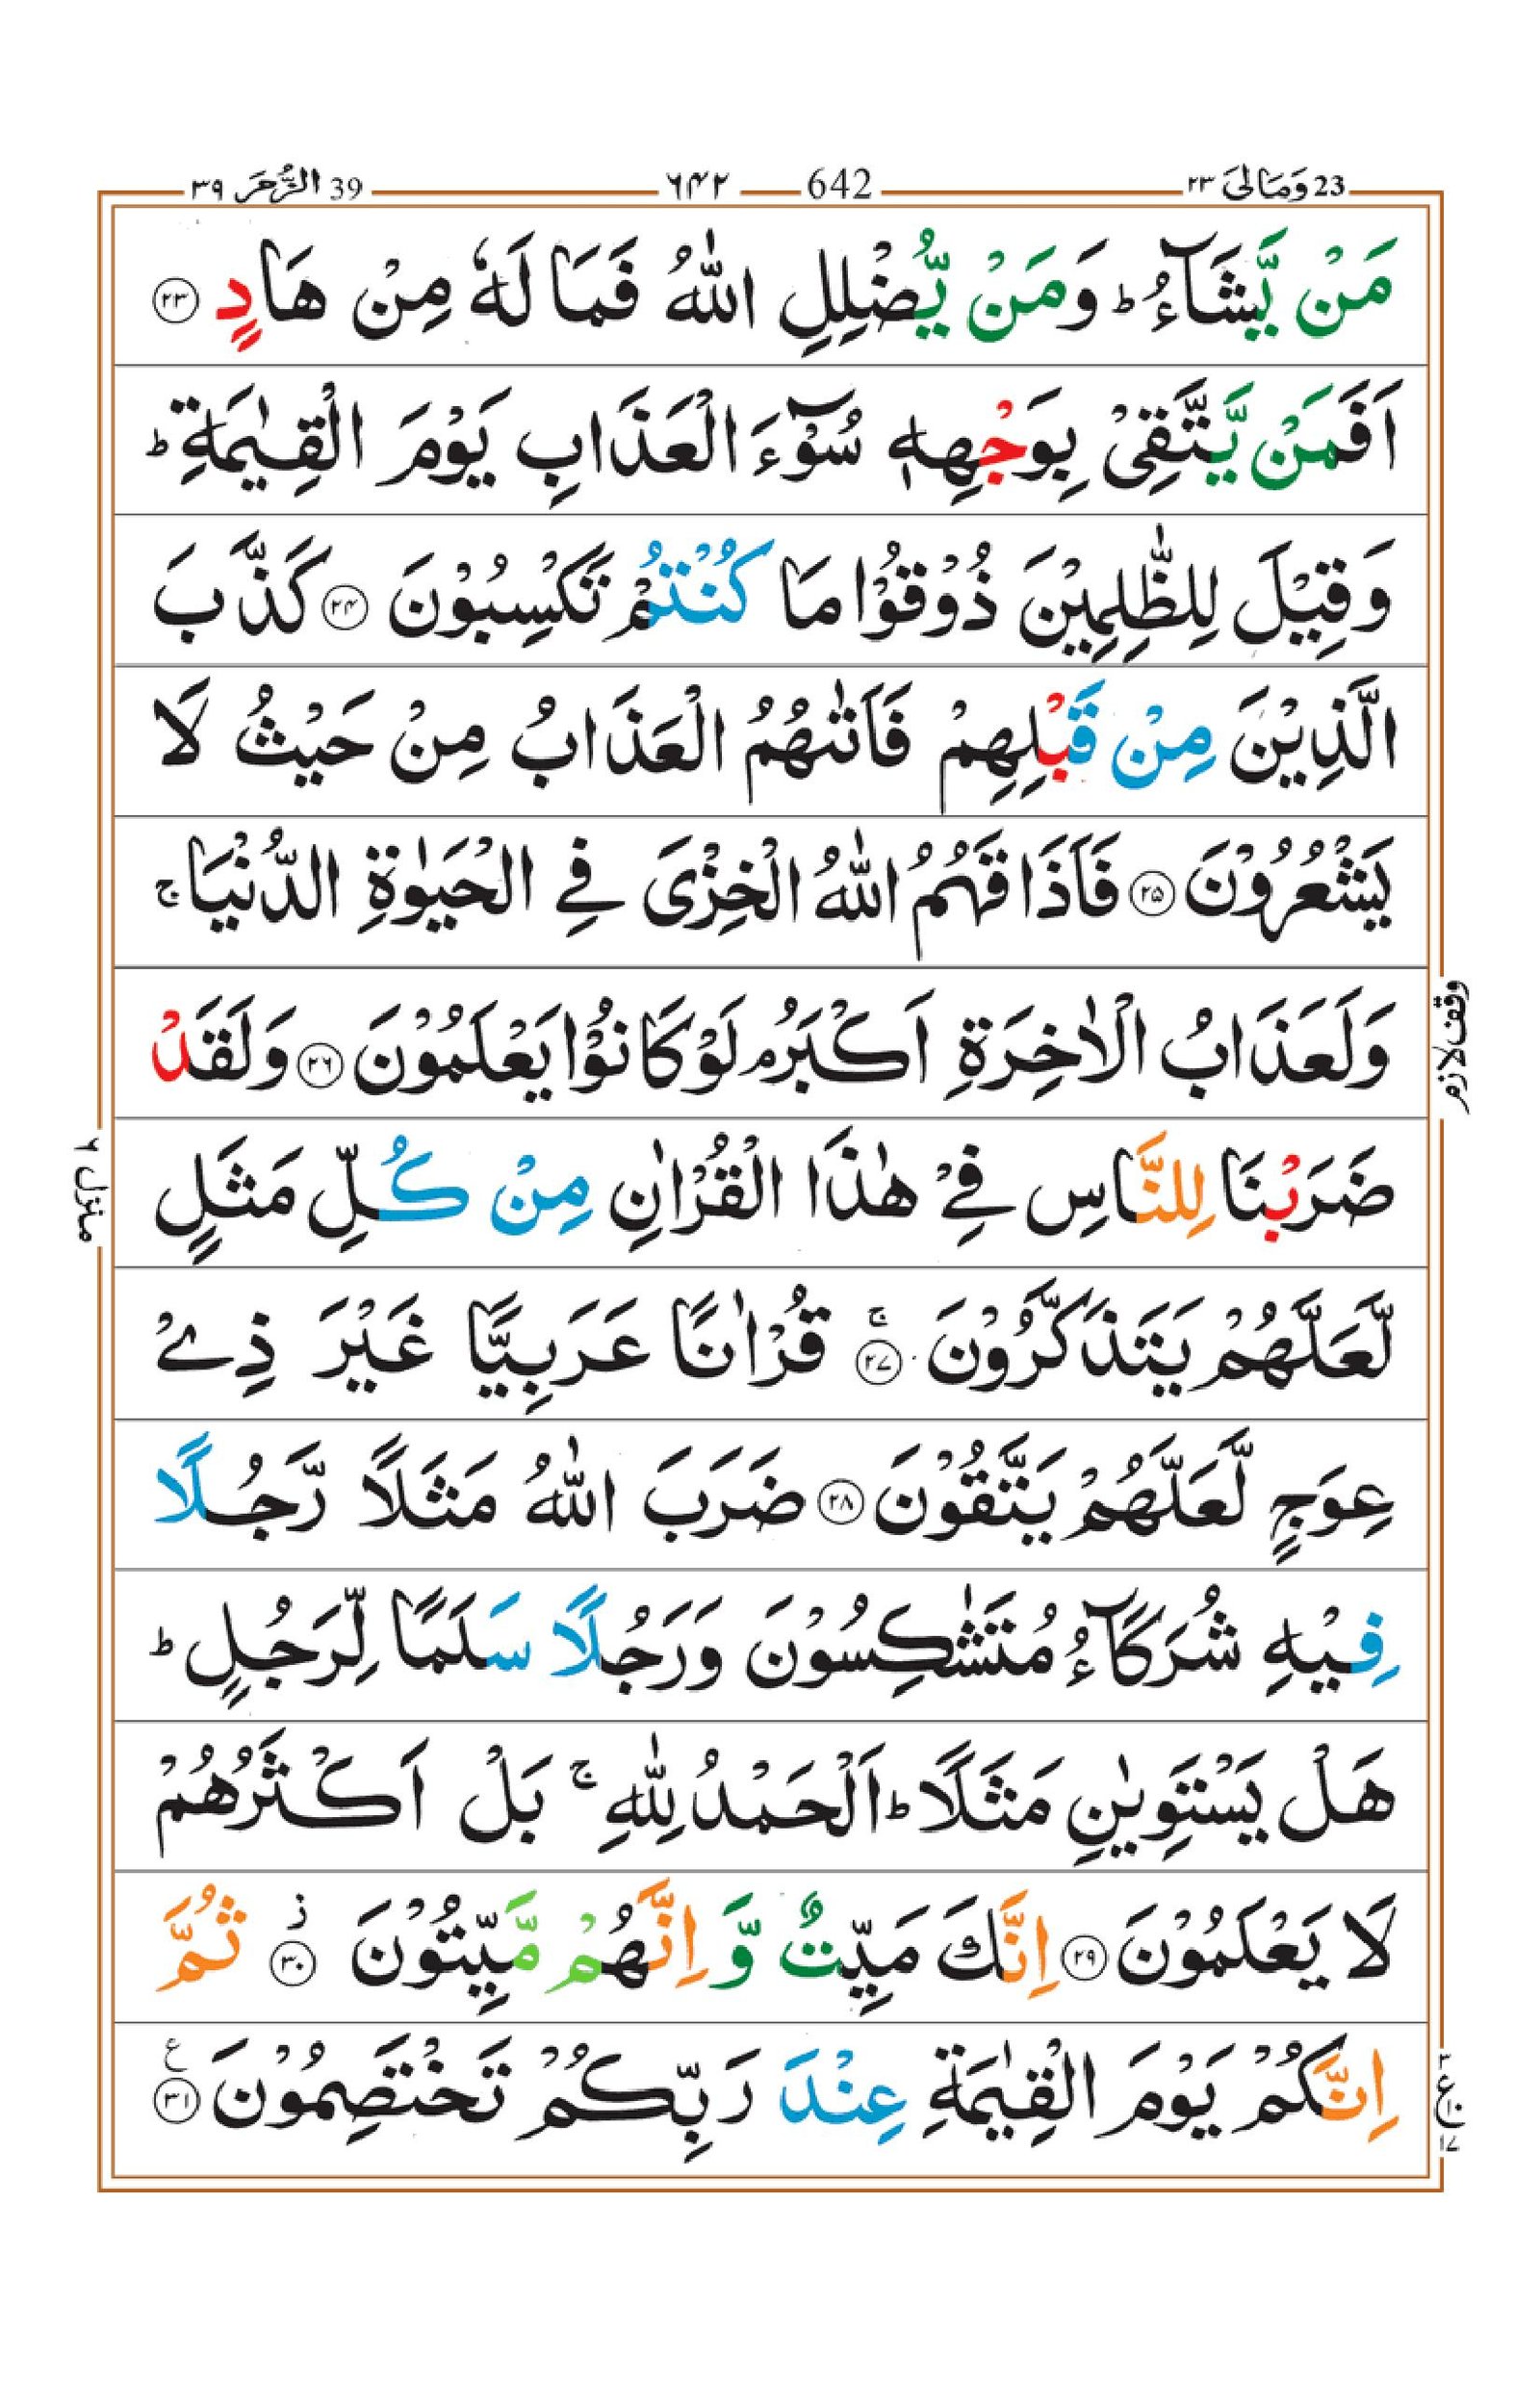 23 وَمَالِیَ ۲۳ 642 ۶۴۲ 39 الزُّمَر ۳۹
مَنْ یَّشَآءُ ؕ وَمَنْ یُّضْلِلِ اللّٰهُ فَمَا لَهٗ مِنْ هَادٍ ۝۲۳
اَفَمَنْ یَّتَّقِیْ بِوَجْهِهٖ سُوْٓءَ الْعَذَابِ یَوْمَ الْقِیٰمَةِ ؕ
وَقِیْلَ لِلظّٰلِمِیْنَ ذُوْقُوْا مَا كُنْتُمْ تَكْسِبُوْنَ ۝۲۴ كَذَّبَ
الَّذِیْنَ مِنْ قَبْلِهِمْ فَاَتٰىهُمُ الْعَذَابُ مِنْ حَیْثُ لَا
یَشْعُرُوْنَ ۝۲۵ فَاَذَاقَهُمُ اللّٰهُ الْخِزْیَ فِی الْحَیٰوةِ الدُّنْیَا ۚ
وَلَعَذَابُ الْاٰخِرَةِ اَكْبَرُ ۘ لَوْ كَانُوْا یَعْلَمُوْنَ ۝۲۶ وَلَقَدْ
وقف لازم
ضَرَبْنَا لِلنَّاسِ فِیْ هٰذَا الْقُرْاٰنِ مِنْ كُلِّ مَثَلٍ
منزل ۶
لَّعَلَّهُمْ یَتَذَكَّرُوْنَ ۝۲۷ ۚ قُرْاٰنًا عَرَبِیًّا غَیْرَ ذِیْ
عِوَجٍ لَّعَلَّهُمْ یَتَّقُوْنَ ۝۲۸ ضَرَبَ اللّٰهُ مَثَلًا رَّجُلًا
فِیْهِ شُرَكَآءُ مُتَشٰكِسُوْنَ وَرَجُلًا سَلَمًا لِّرَجُلٍ ؕ
هَلْ یَسْتَوِیٰنِ مَثَلًا ؕ اَلْحَمْدُ لِلّٰهِ ۚ بَلْ اَكْثَرُهُمْ
لَا یَعْلَمُوْنَ ۝۲۹ اِنَّكَ مَیِّتٌ وَّاِنَّهُمْ مَّیِّتُوْنَ ۝۳۰ ز ثُمَّ
اِنَّكُمْ یَوْمَ الْقِیٰمَةِ عِنْدَ رَبِّكُمْ تَخْتَصِمُوْنَ ۝۳۱ ع
۳ ع ۱۰ ۱۷